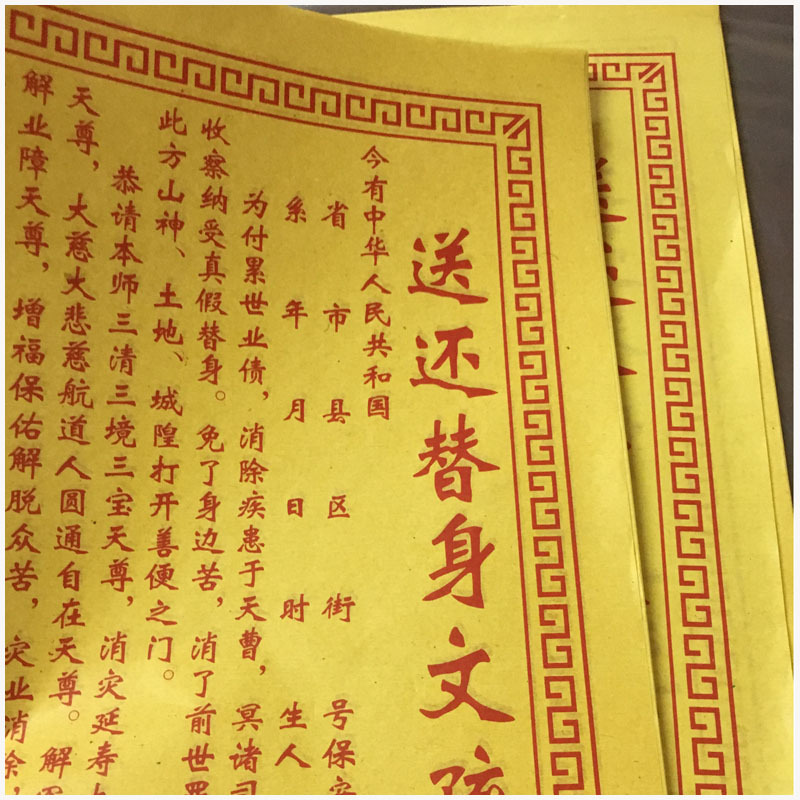 送还替身文疏
今有中华人民共和国
省市县区街号保安
系年月日时生人
为付累世业债，消除疾患于天曹，冥诸司
收察纳受真假替身。免了身边苦，消了前世罪
此方山神、土地、城隍打开善便之门。
恭请本师三清三境三宝天尊，消灾延寿
天尊，大慈大悲慈航道人圆通自在天尊。解
解业障天尊，增福保佑解脱众苦，灾业消除，